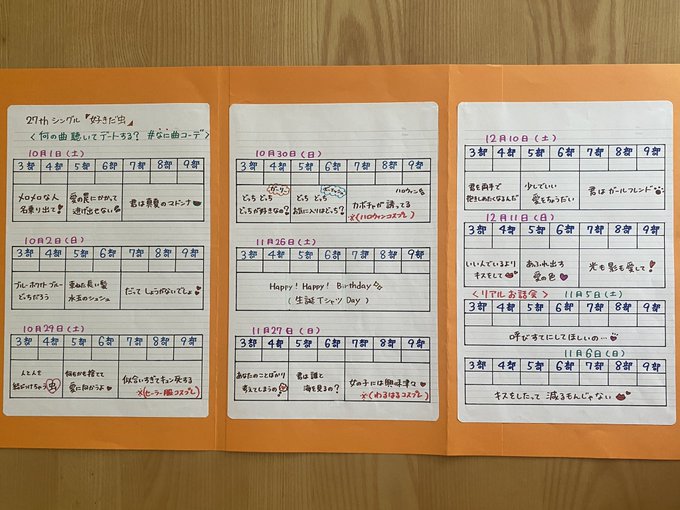 27thシングル『好きだ虫』
<何の曲聴いてデートする? #なに曲コーデ>
10月1日(土)
3部 4部 5部 6部 7部 8部 9部
メロメロな人 愛の罠にかかって 君は真夏のマドンナ
名乗り出て! 逃げ出せない
10月2日(日)
3部 4部 5部 6部 7部 8部 9部
ブルー・ホワイト・ブルー 束ねた長い髪 だってしょうがないでしょ
どっちだろう 水玉のシュシュ
10月29日(土)
3部 4部 5部 6部 7部 8部 9部
人と人を 何もかも捨てて 似合いすぎてキュン死する
結びつけちゃう虫 愛に向かうよ ※(セーラー服コスプレ)
10月30日(日)
3部 4部 5部 6部 7部 8部 9部
どっち どっち どっち どっち ハロウィン
どっちが好きなの? お気に入りはどっち? カボチャが誘ってる
※(ハロウィンコスプレ)
11月26日(土)
3部 4部 5部 6部 7部 8部 9部
Happy! Happy! Birthday
(生誕TシャツDay)
11月27日(日)
3部 4部 5部 6部 7部 8部 9部
あなたのことばかり 君は誰と 女の子には興味津々
考えてしまうの 海を見るの? ※(わるはるコスプレ)
12月10日(土)
3部 4部 5部 6部 7部 8部 9部
君を両手で 少しでいい 君はガールフレンド
抱きしめたくなるんだ 愛をちょうだい
12月11日(日)
3部 4部 5部 6部 7部 8部 9部
いいんでいるより あふれ出す 光も影も愛して!
キスをして 愛の色
<リアルお話会> 11月5日(土)
3部 4部 5部 6部 7部 8部 9部
呼びすてにしてほしいの…
11月6日(日)
3部 4部 5部 6部 7部 8部 9部
キスをしたって減るもんじゃない